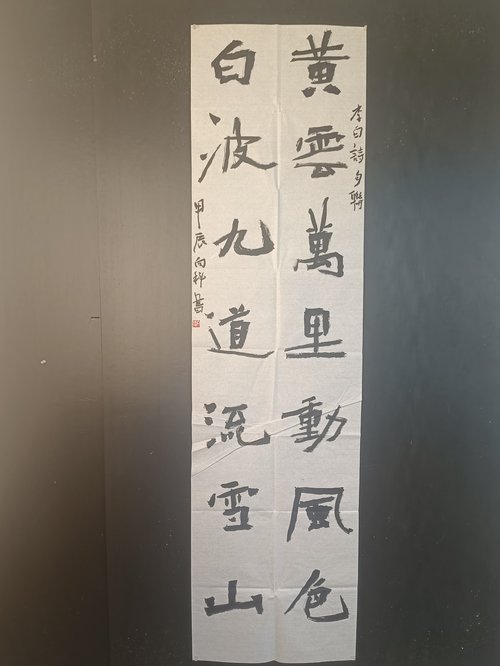 黃雲萬里動風色
李白詩句聯
白波九道流雪山
甲辰向科書